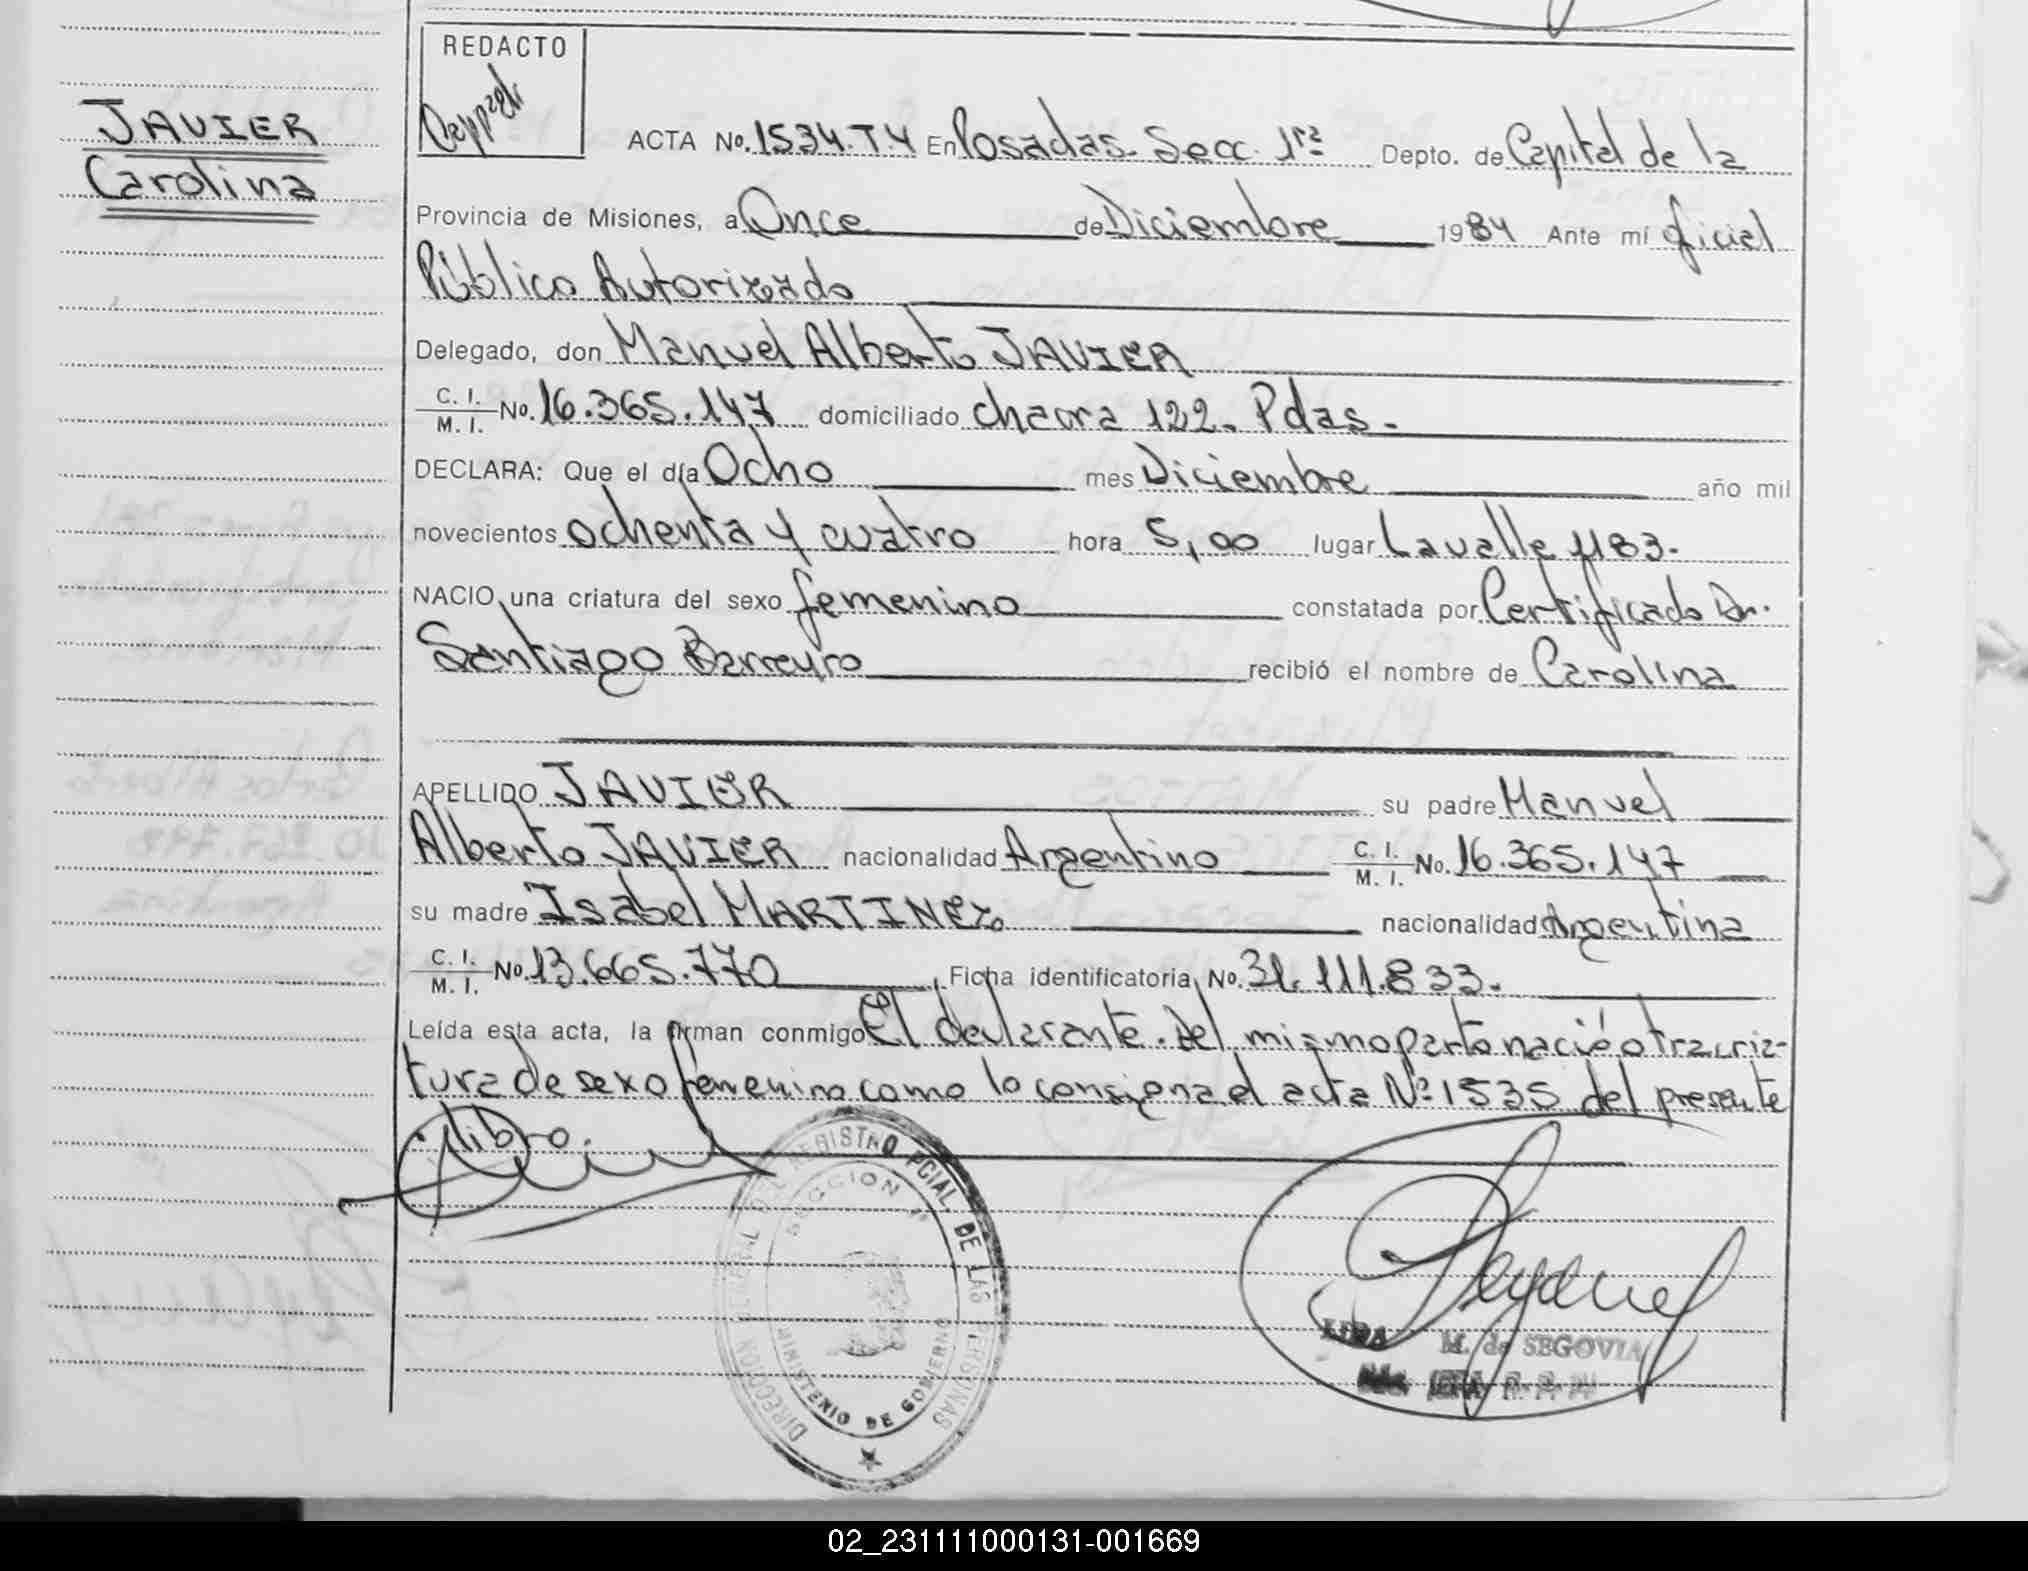 REDACTO
JAVIER
Carolina
ACTA No. 1534.T.4 En Posadas. Secc. 1ra Depto. de Capital de la
Provincia de Misiones, a Once de Diciembre 1984 Ante mí oficial
Público Autorizado
Delegado, don Manuel Alberto JAVIER
C. I. / M. I. No. 16.365.147 domiciliado chacra 122. Pdas.
DECLARA: Que el día Ocho mes Diciembre año mil
novecientos ochenta y cuatro hora 5,00 lugar Lavalle 1183.
NACIO una criatura del sexo femenino constatada por Certificado Dr.
Santiago Barreyro recibió el nombre de Carolina
APELLIDO JAVIER su padre Manuel
Alberto JAVIER nacionalidad Argentino C. I. / M. I. No. 16.365.147
su madre Isabel MARTINEZ. nacionalidad Argentina
C. I. / M. I. No. 13.665.770 Ficha identificatoria No. 31.111.833.
Leída esta acta, la firman conmigo El declarante. Del mismo parto nació otra cria-
tura de sexo femenino como lo consigna el acta Nº 1535 del presente
libro.
DIRECCION GENERAL DEL REGISTRO PCIAL. DE LAS PERSONAS
SECCION 1ª
MINISTERIO DE GOBIERNO
M. de SEGOVIA
02_231111000131-001669